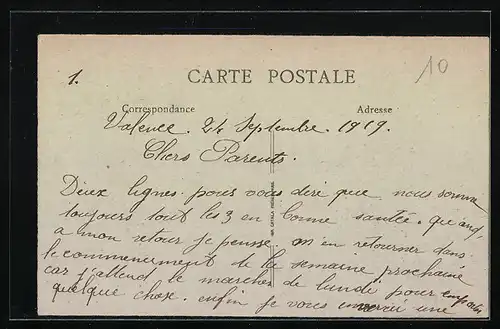 1.
CARTE POSTALE
10
Correspondance
Adresse
Valence. 24 Septembre. 1919.
Chers Parents.
Deux lignes pour vous dire que nous somme
toujours tout les 3 en bonne santée. quand,
a mon retour je pensse m en retourner dans
le commencement de la semaine prochaine
car j'attend le marcher de lundi pour emporter
quelque chose. enfin je vous une